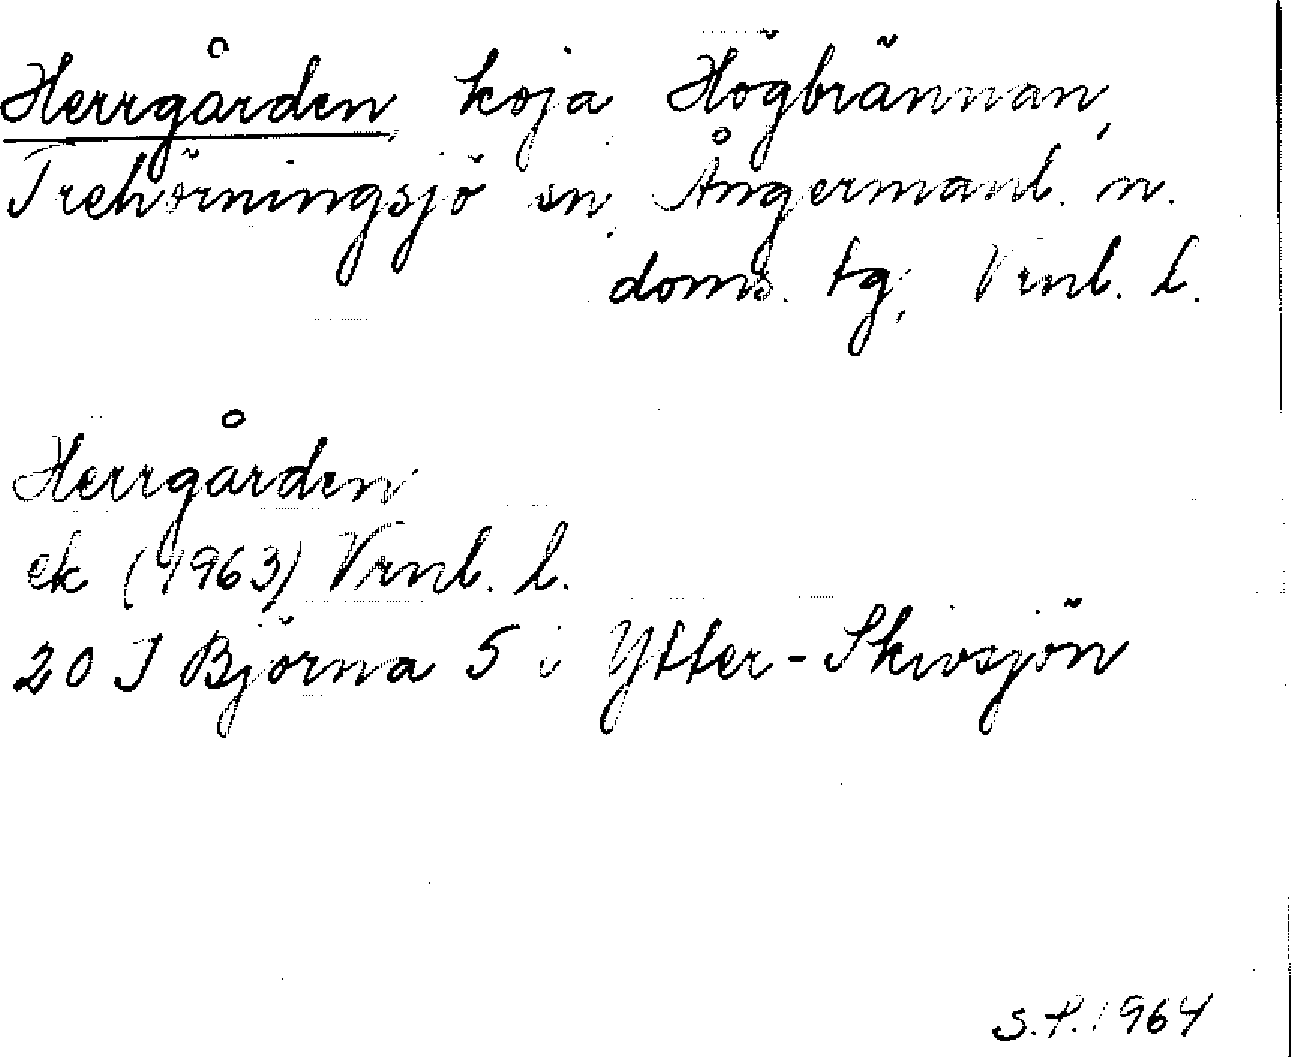 Herrgården, koja, Högbrännan,
Trehörningsjö sn, Ångermanl. n.
doms. tg, Vrnl. l.
Herrgården
ek (1963) Vrnl. l.
20 J Björna 5 i Ytter-Skivsjön
S.P. 1964